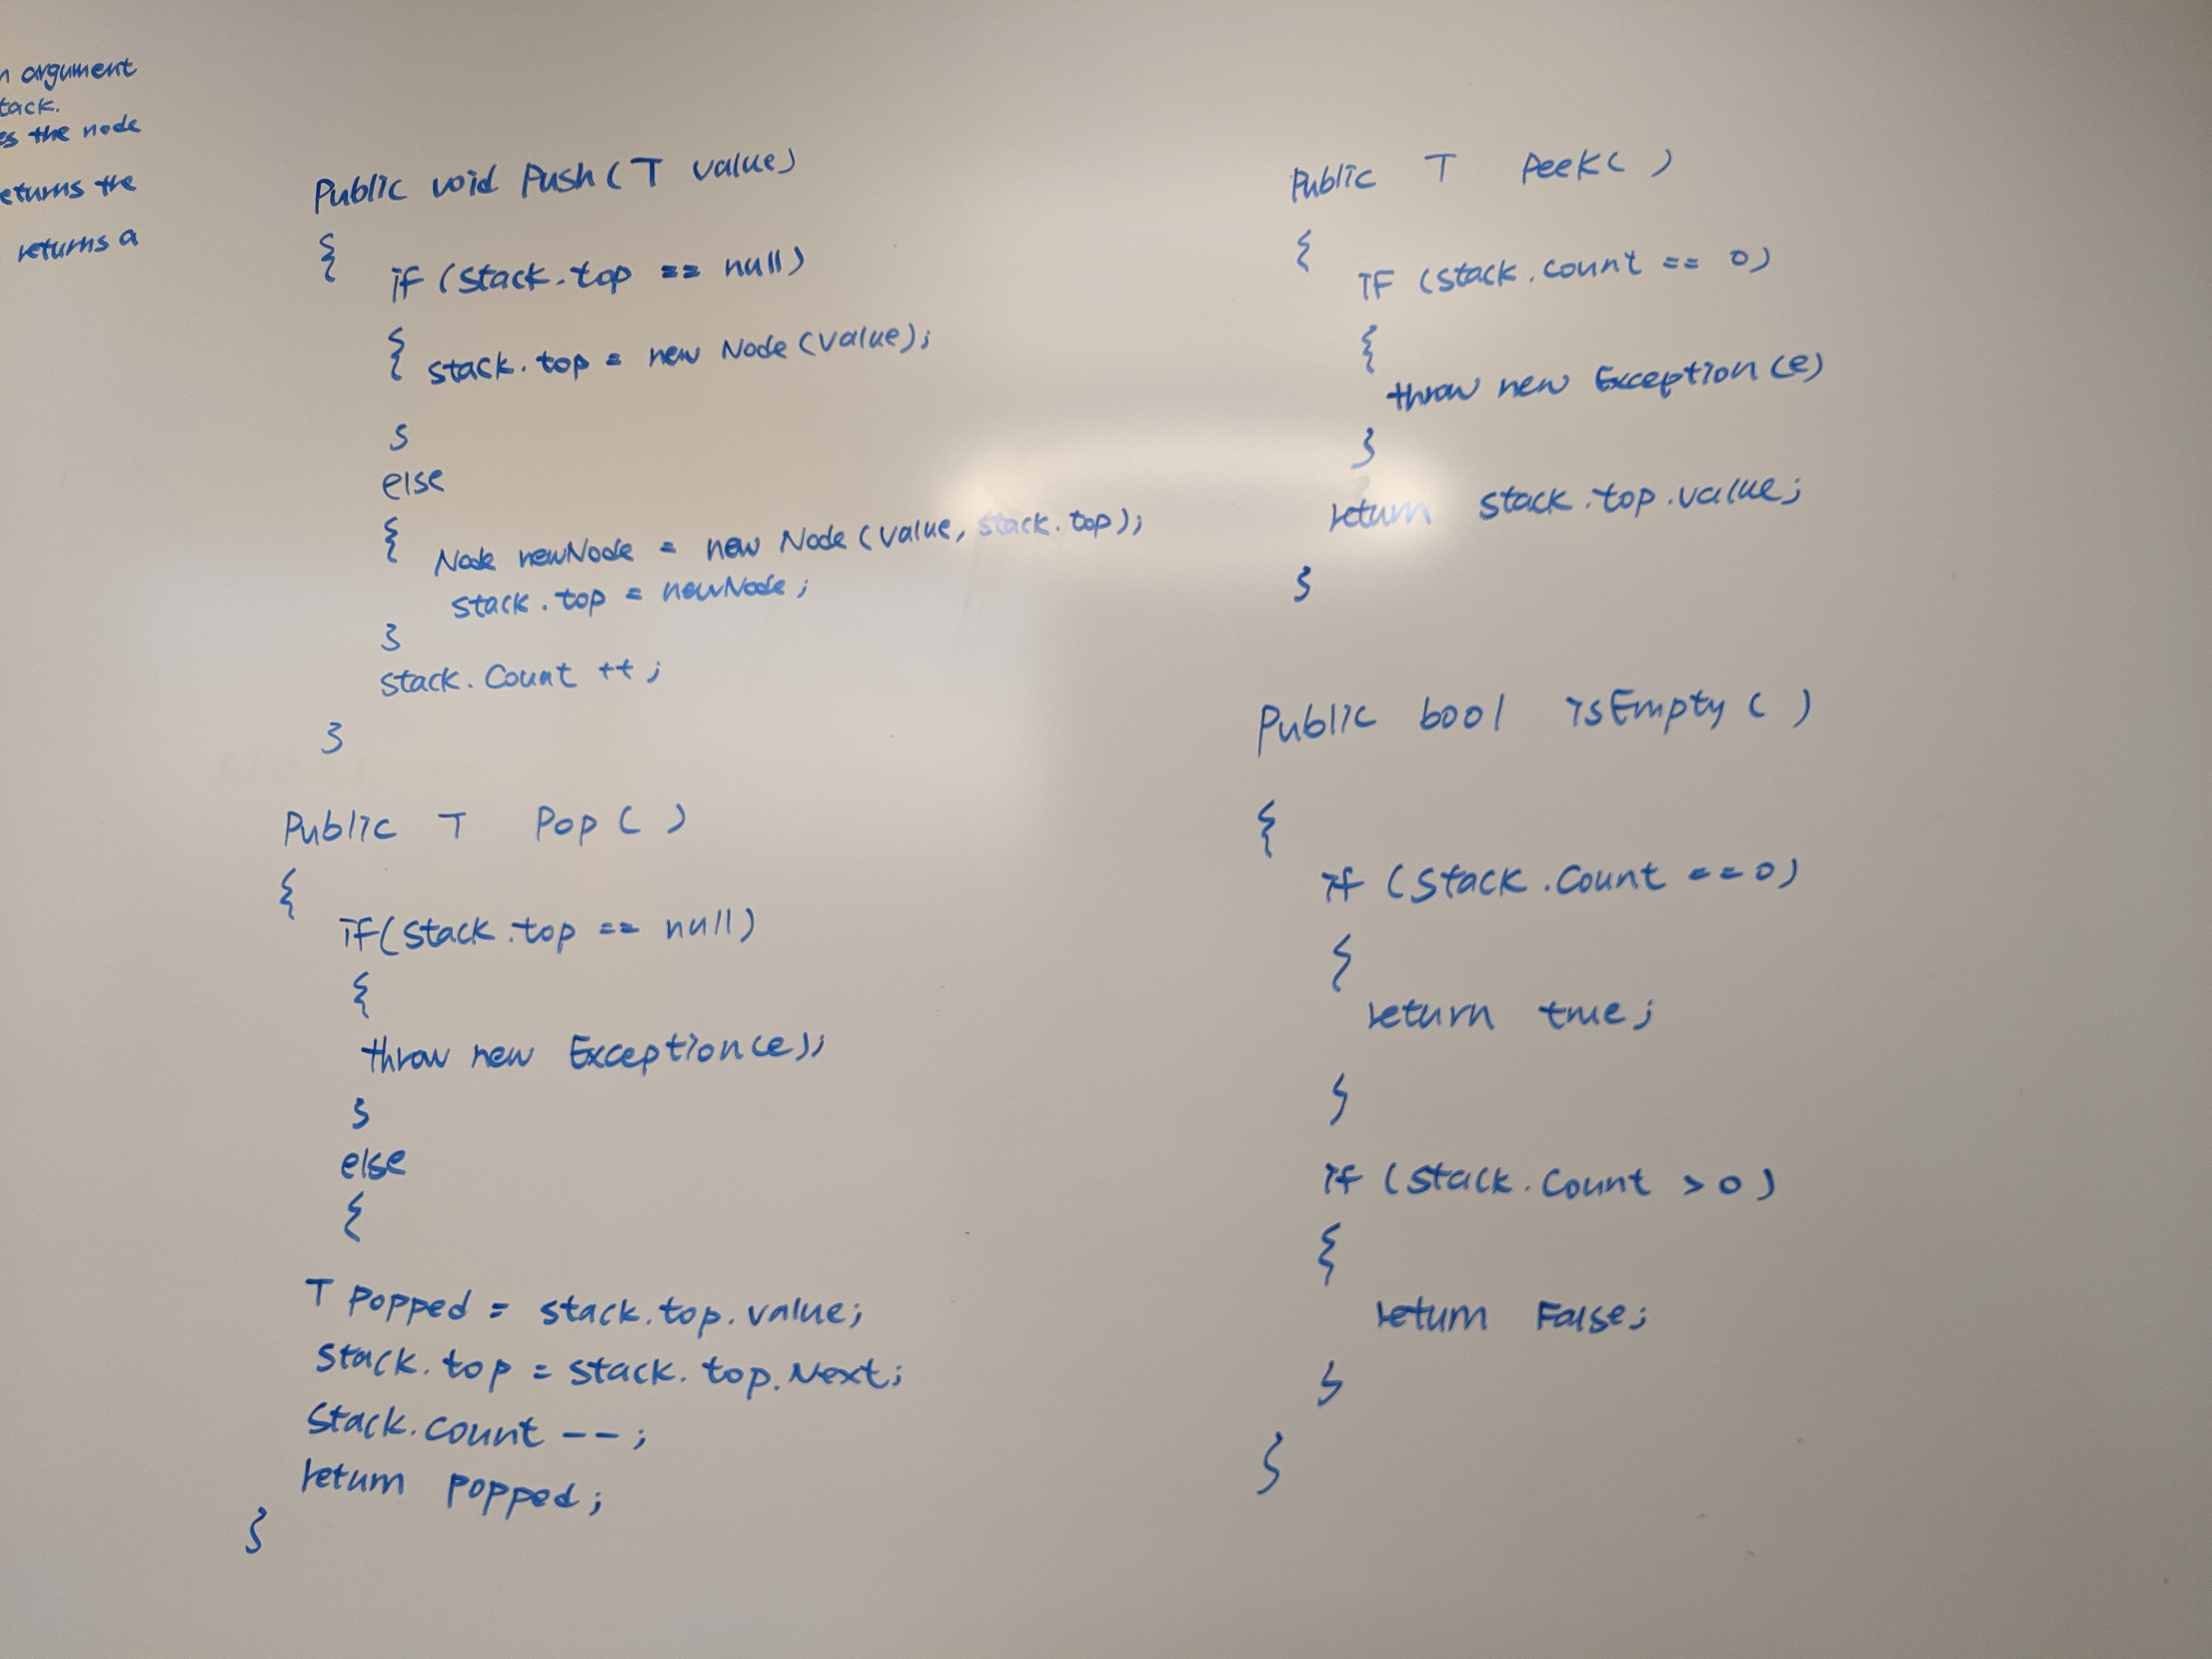 argument
tack.
es the node
eturns the
returns a
Public void Push(T value)
{
if (stack.top == null)
{ stack.top = new Node(value);
}
else
{ Node newNode = new Node(value, stack.top);
stack.top = newNode;
}
stack.Count ++;
}
Public T Pop( )
{
if(stack.top == null)
{
throw new Exception(e);
}
else
{
T popped = stack.top.value;
stack.top = stack.top.Next;
stack.count --;
return popped;
}
Public T Peek( )
{
if (stack.count == 0)
{
throw new Exception(e)
}
return stack.top.value;
}
Public bool isEmpty( )
{
if (stack.Count ==0)
{
return true;
}
if (stack.Count >0)
{
return False;
}
}